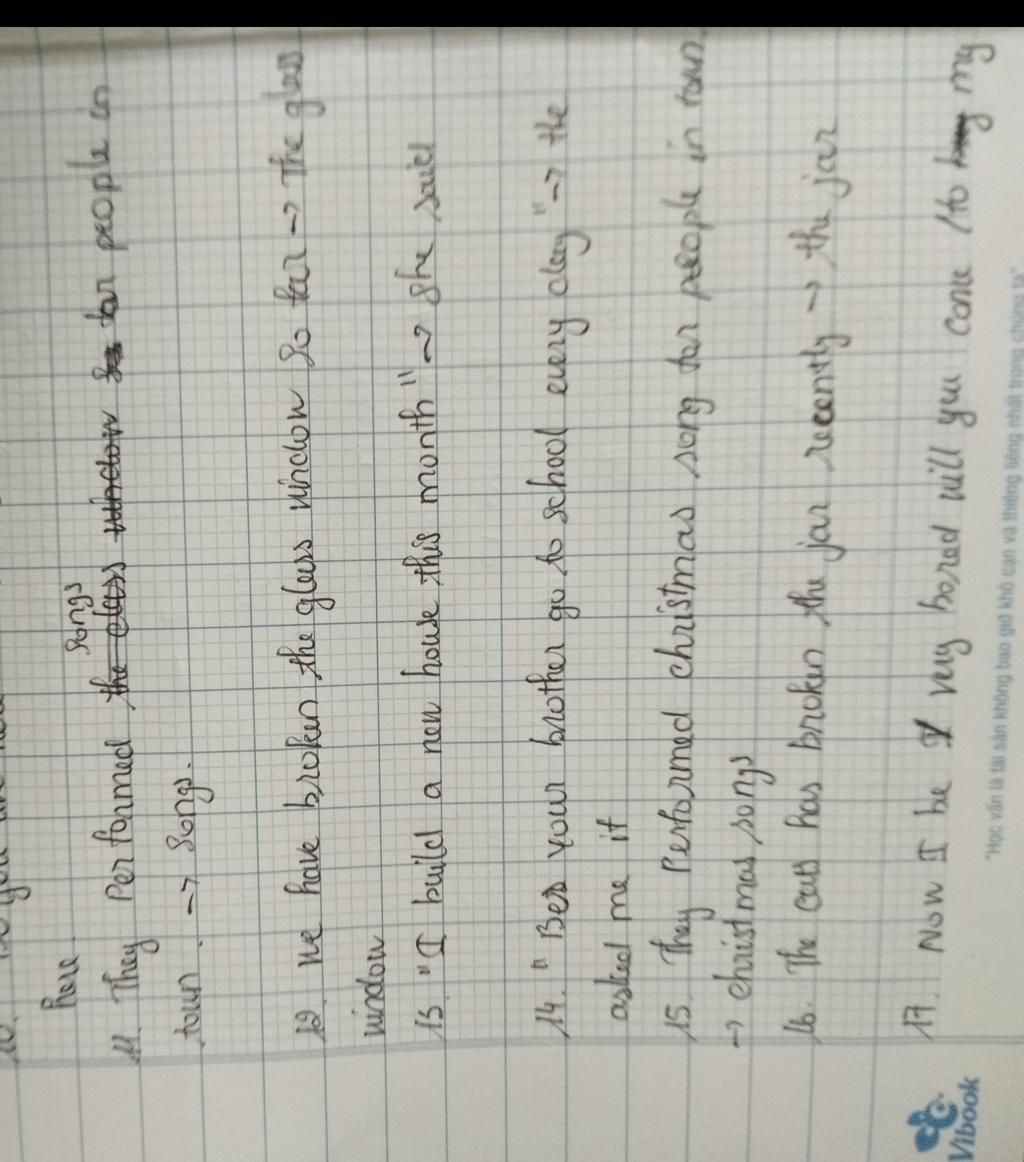 here
11. They performed the glass window songs for people in
town. → songs.
12 we have broken the glass window so far → The glass
window
13. "I build a new house this month" → she said
14. " Bes your brother go to school every day" → the
asked me if
15. They performed christmas song for people in town.
→ christmas songs
16. The cats has broken the jar recently → the jar
17. Now I be very bored will you come to my
"Học vấn là tài sản không bao giờ khô cạn và thiêng liêng nhất trong chúng ta"
Vibook